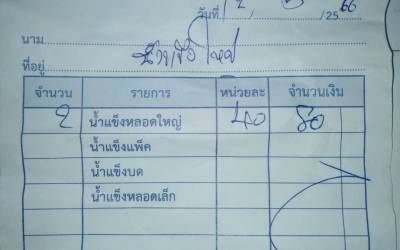 วันที่ 12 / 5 / 25 66
นาม
ที่อยู่
จำนวน รายการ หน่วยละ จำนวนเงิน
2 น้ำแข็งหลอดใหญ่ 40 80
น้ำแข็งแพ็ค
น้ำแข็งบด
น้ำแข็งหลอดเล็ก